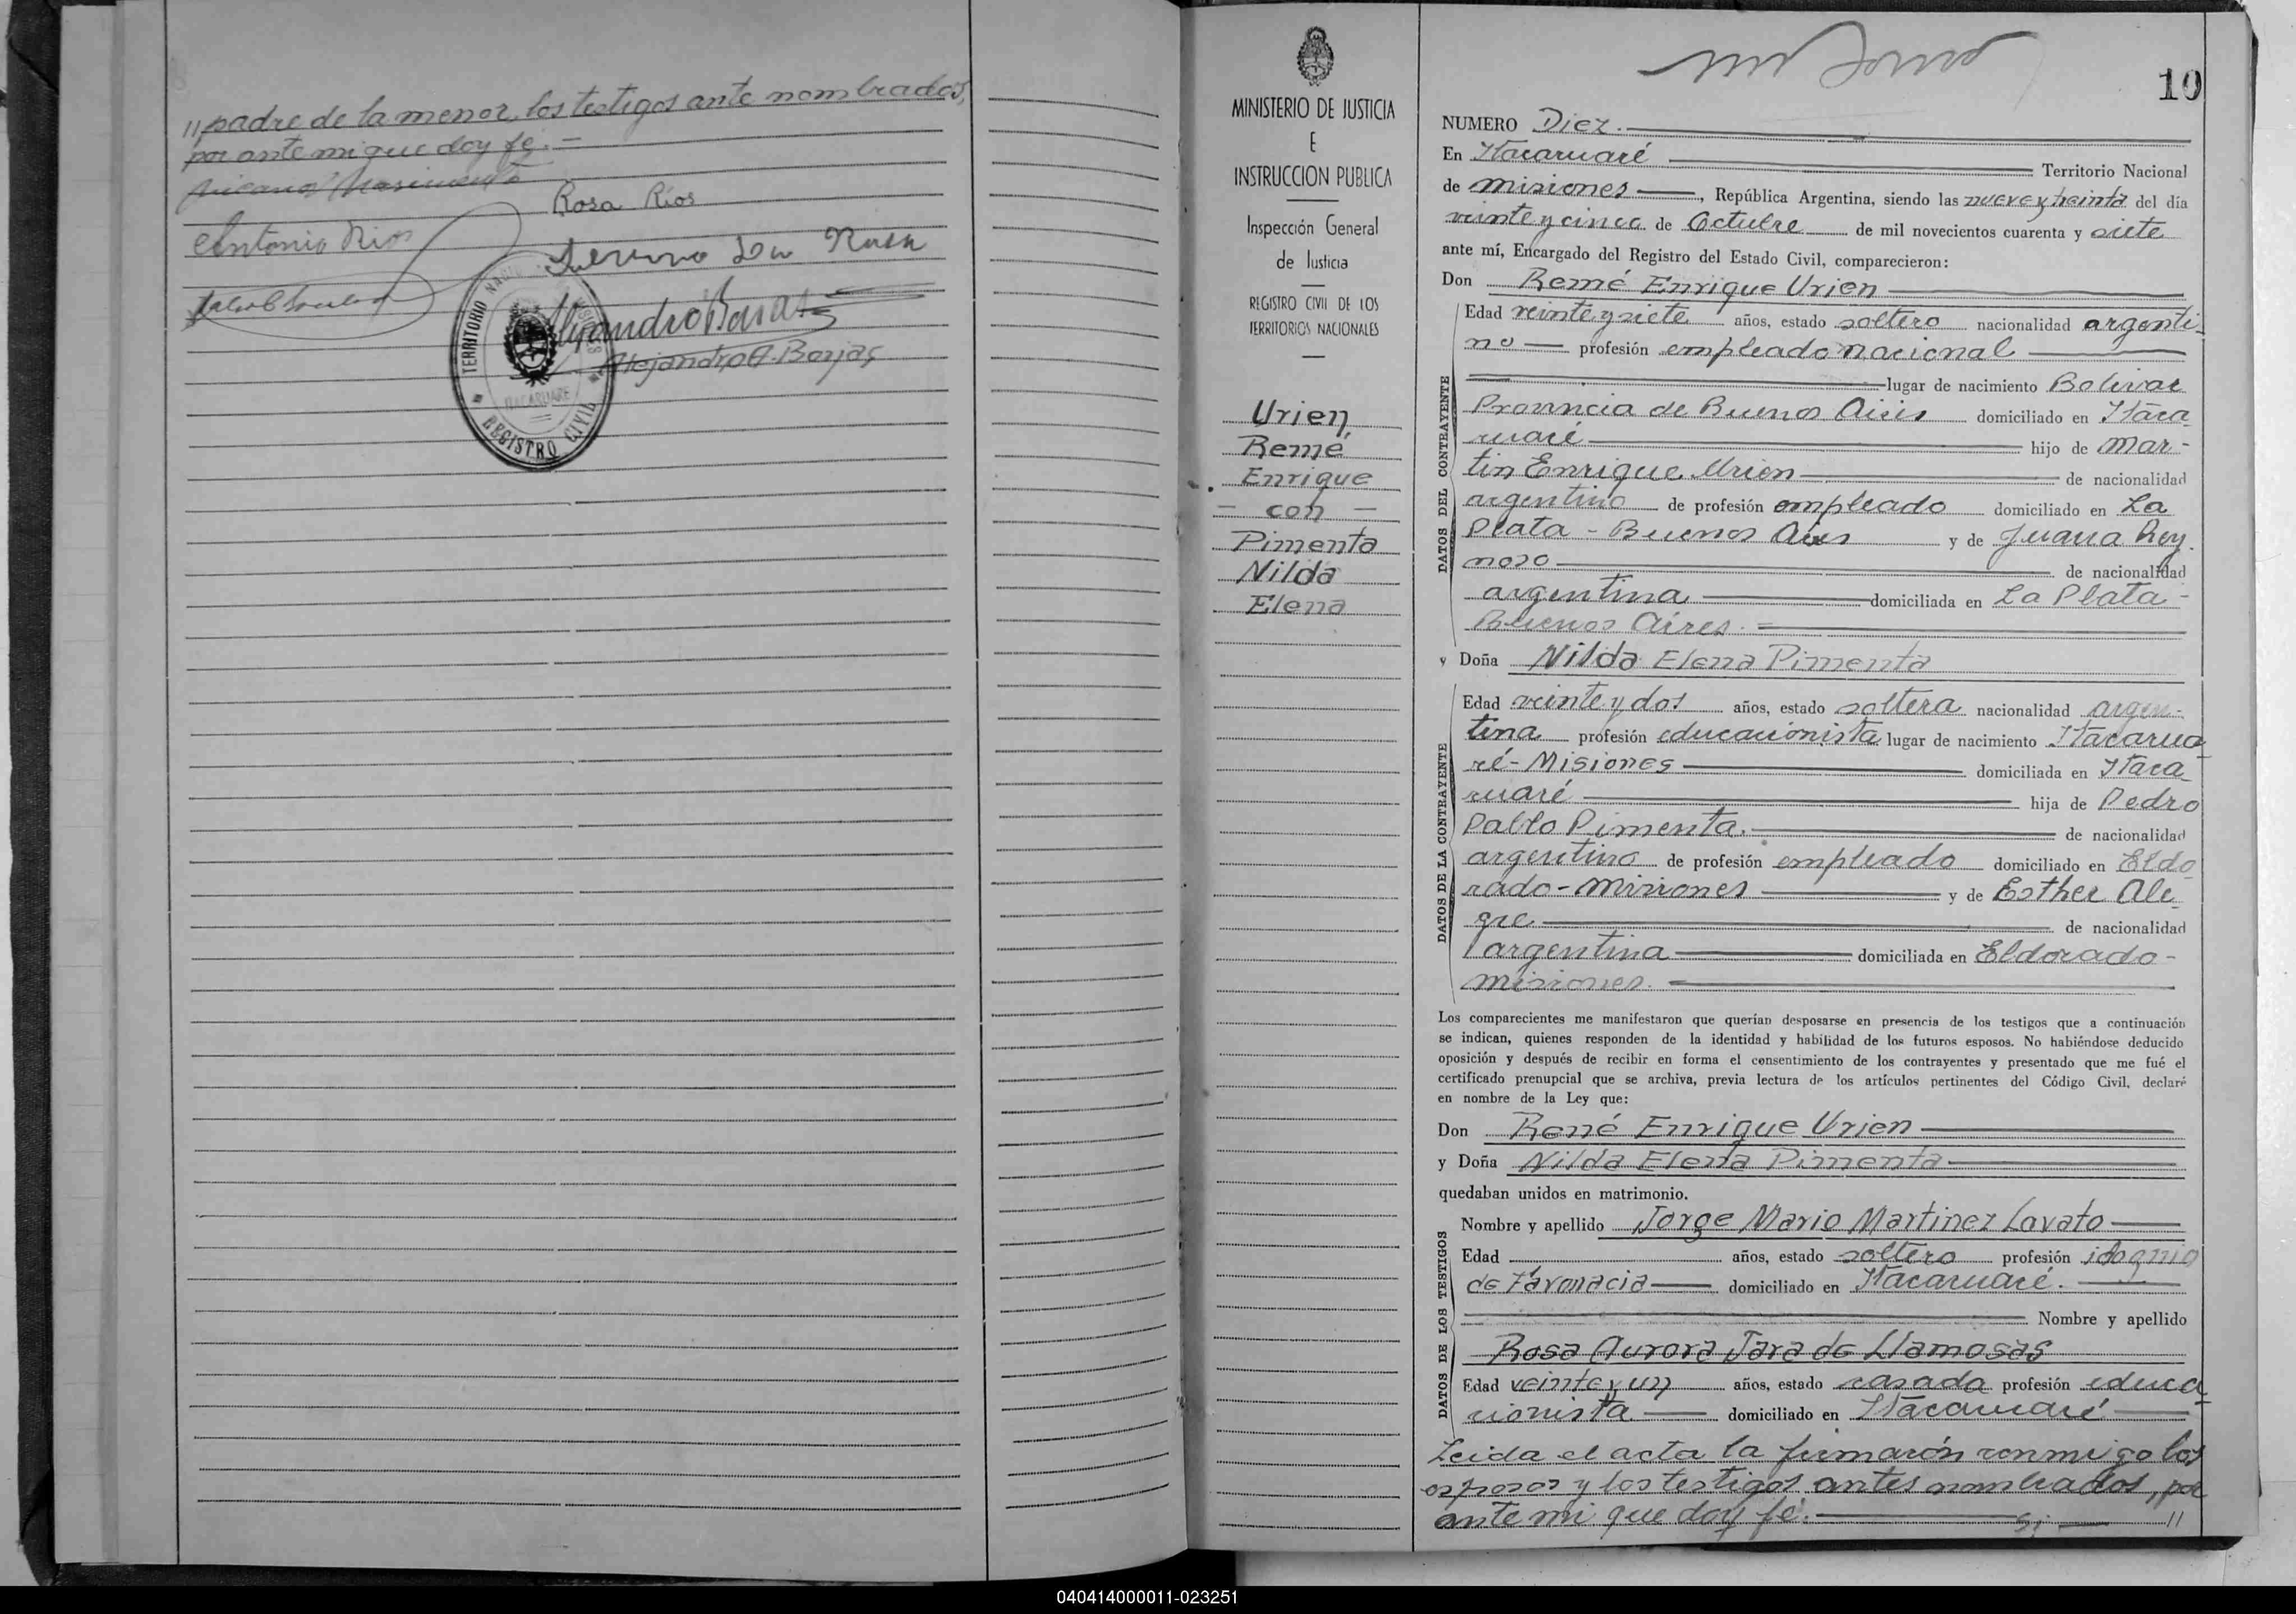 // padre de la menor, los testigos ante nombrados,
por ante mi que doy fé. —
Rosa Ríos
Antonio Rios
Alejandro A. Barjas
TERRITORIO NACIO MISIONES
ITACARUARE
REGISTRO CIVIL
MINISTERIO DE JUSTICIA
E
INSTRUCCION PUBLICA
Inspección General
de Justicia
REGISTRO CIVIL DE LOS
TERRITORIOS NACIONALES
Urien
René
Enrique
- con -
Pimenta
Nilda
Elena
10
NUMERO Diez.
En Itacaruaré Territorio Nacional
de Misiones, República Argentina, siendo las nueve y treinta del día
veinte y cinco de Octubre de mil novecientos cuarenta y siete
ante mí, Encargado del Registro del Estado Civil, comparecieron:
Don René Enrique Urien
DATOS DEL CONTRAYENTE
Edad veinte y siete años, estado soltero nacionalidad argenti-
no profesión empleado nacional
lugar de nacimiento Bolivar
Provincia de Buenos Aires domiciliado en Itaca
ruaré hijo de Mar-
tin Enrique Urien de nacionalidad
argentino de profesión empleado domiciliado en La
Plata - Buenos Aires y de Juana Rey
noso de nacionalidad
argentina domiciliada en La Plata -
Buenos Aires.
y Doña Nilda Elena Pimenta
DATOS DE LA CONTRAYENTE
Edad veinte y dos años, estado soltera nacionalidad argen-
tina profesión educacionista lugar de nacimiento Itacarua
ré - Misiones domiciliada en Itaca
ruaré hija de Pedro
Pablo Pimenta. de nacionalidad
argentino de profesión empleado domiciliado en Eldo
rado - Misiones y de Esther Ale
gre de nacionalidad
argentina domiciliada en Eldorado -
Misiones.
Los comparecientes me manifestaron que querían desposarse en presencia de los testigos que a continuación
se indican, quienes responden de la identidad y habilidad de los futuros esposos. No habiéndose deducido
oposición y después de recibir en forma el consentimiento de los contrayentes y presentado que me fué el
certificado prenupcial que se archiva, previa lectura de los artículos pertinentes del Código Civil, declaré
en nombre de la Ley que:
Don René Enrique Urien
y Doña Nilda Elena Pimenta
quedaban unidos en matrimonio.
DATOS DE LOS TESTIGOS
Nombre y apellido Jorge Mario Martinez Lovato
Edad años, estado soltero profesión
de Farmacia domiciliado en Itacaruaré.
Nombre y apellido
Rosa Aurora Jara de Llamosas
Edad veinte y un años, estado casada profesión educa
cionista domiciliado en Itacaruaré
Leida el acta la firmarón conmigo los
esposos y los testigos antes nombrados, por
ante mi que doy fé. //
040414000011-023251